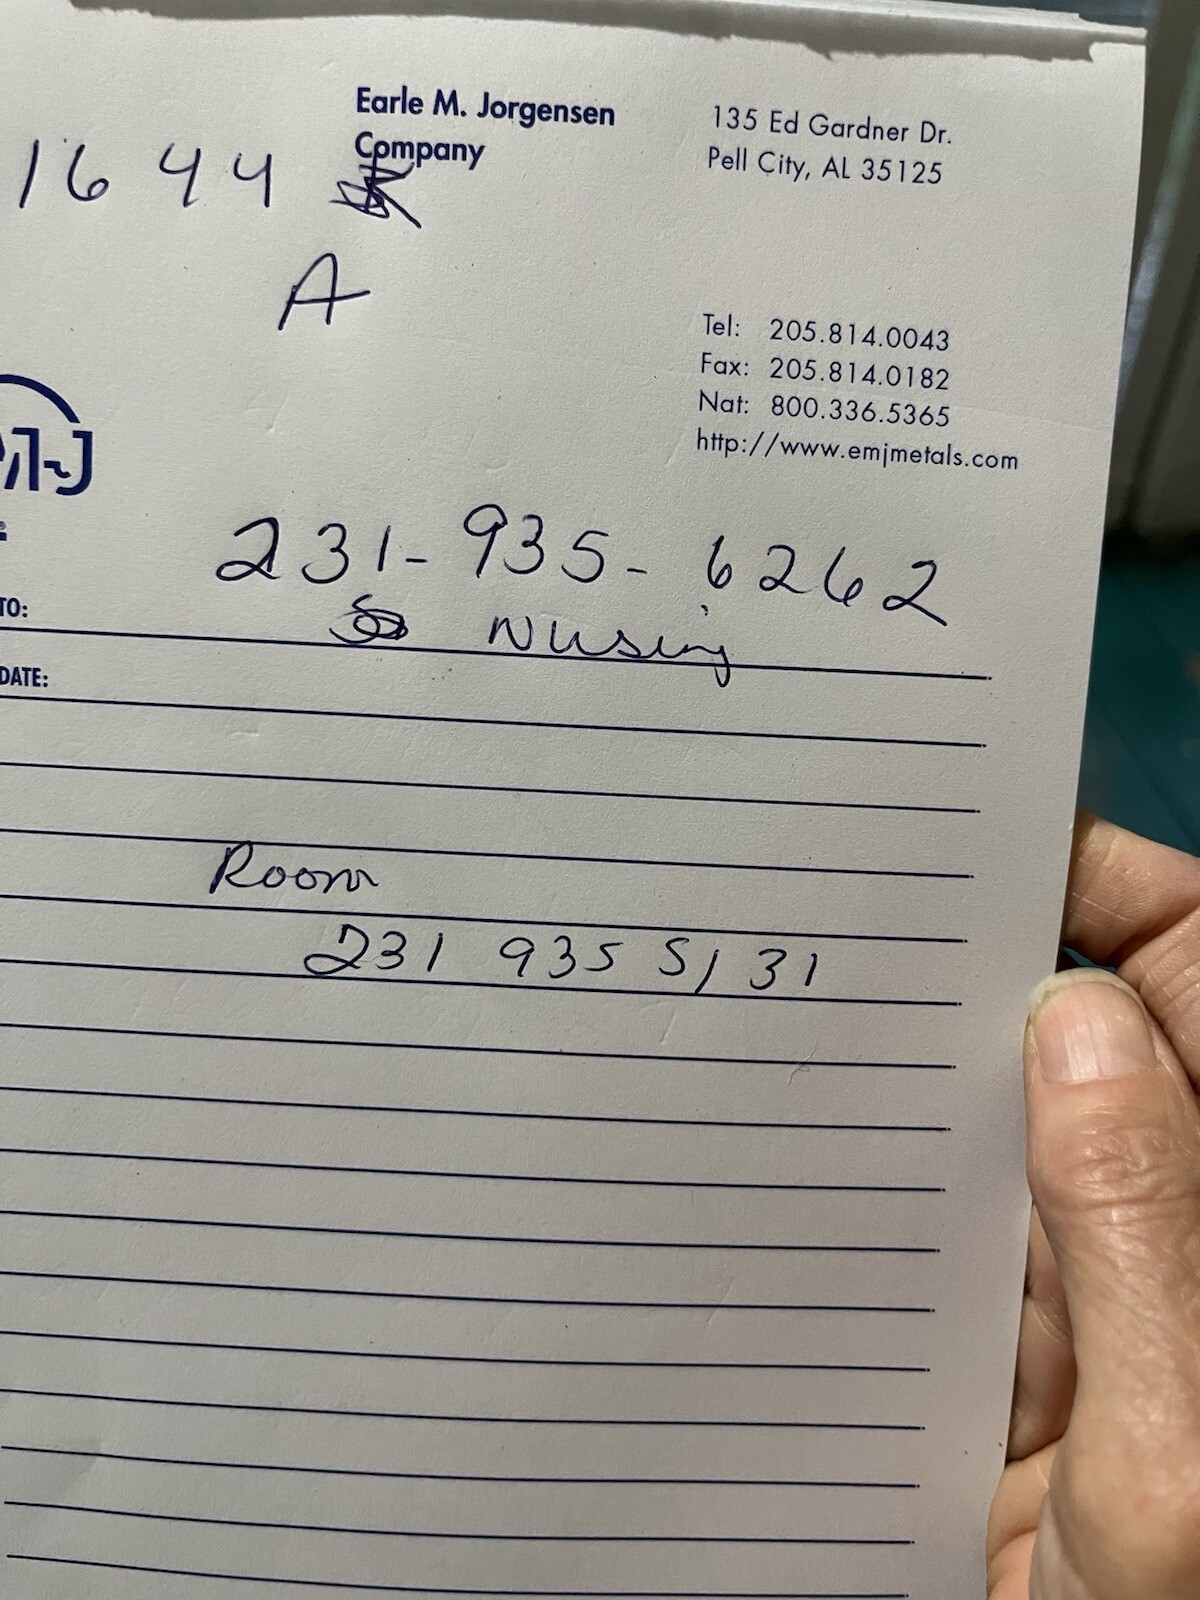 Earle M. Jorgensen
Company
135 Ed Gardner Dr.
Pell City, AL 35125
1644
A
Tel: 205.814.0043
Fax: 205.814.0182
Nat: 800.336.5365
http://www.emjmetals.com
231-935-6262
TO:
Nursing
DATE:
Room
231 935 5131